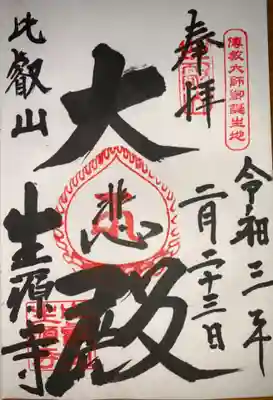 傳教大師御誕生地
奉拝
令和三年
二月二十三日
大悲殿
比叡山
生源寺